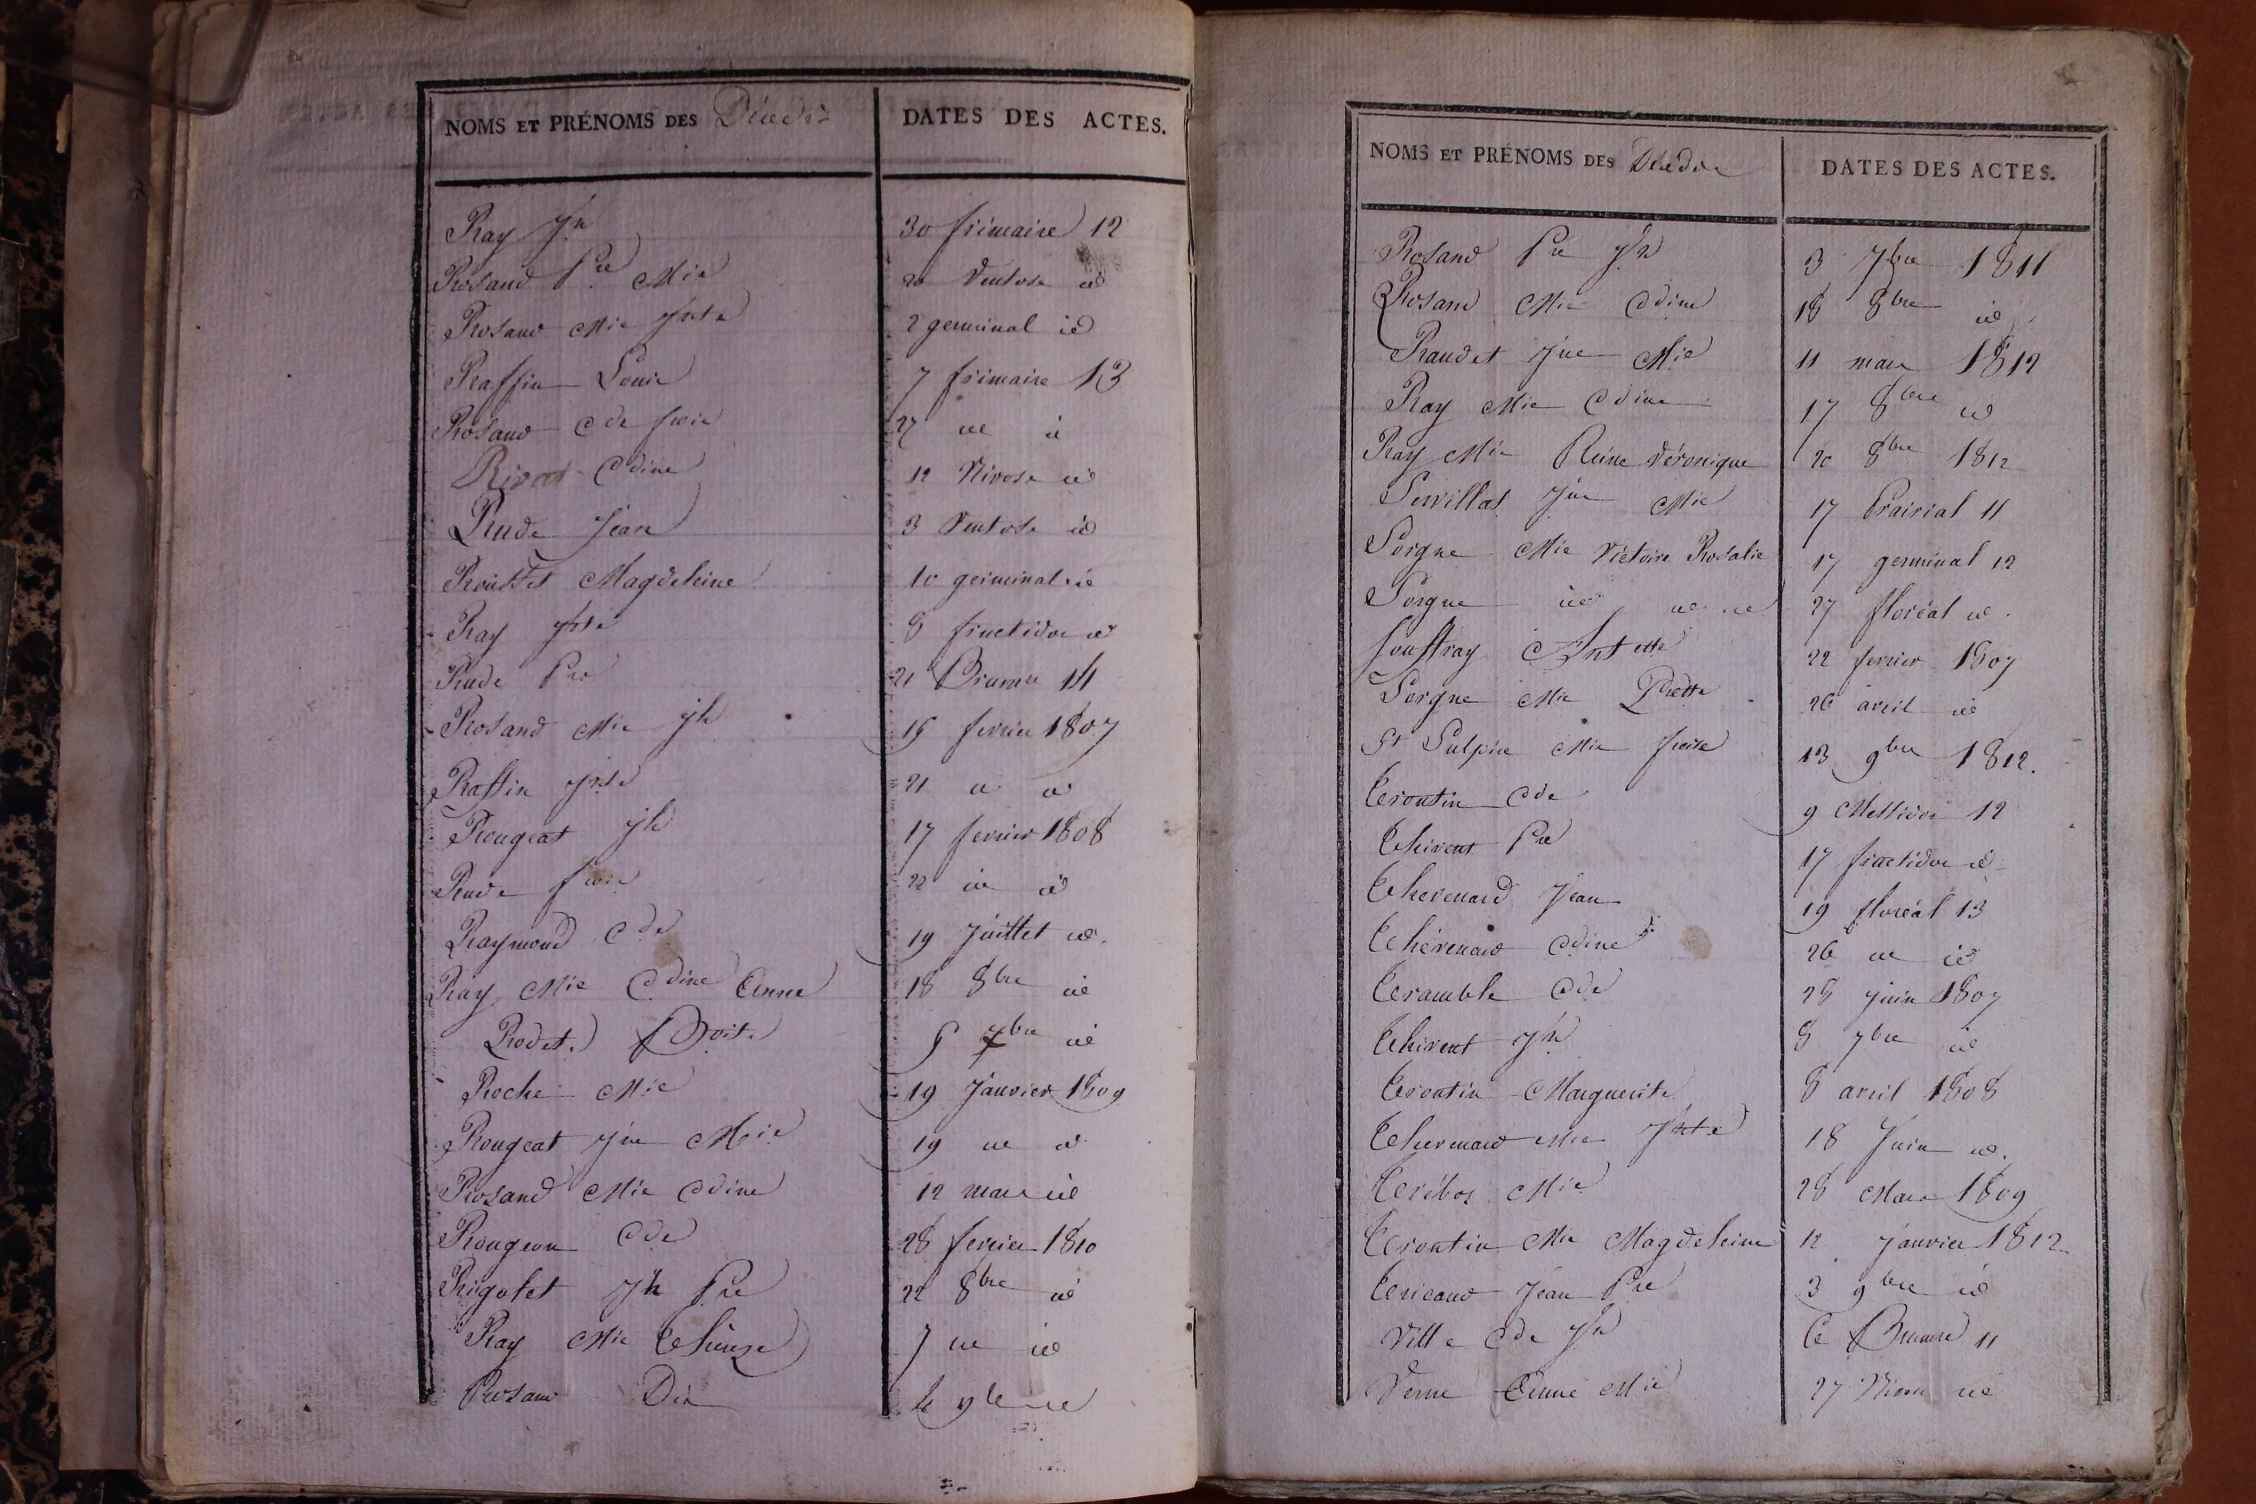 NOMS ET PRÉNOMS DES Décédés DATES DES ACTES.
Ray Jh 30 frimaire 12
Rosand Pre Mie 20 Ventose id
Rosand Mie Jhte 2 germinal id
Raffin Louis 7 frimaire 13
Rosand Cde frois 27 id id
Rivat Cdine 12 Nivose id
Rude Jean 3 Ventose id
Roustet Magdeleine 10 germinal id
Ray Jhte 8 fructidor id
Rude Pre 21 Brumre 14
Rosand Mie Jh 15 fevrier 1807
Raffin Jhte 21 id id
Rougeat Jh 17 fevrier 1808
Rude frois 22 id id
Raymond Cde 19 Juillet id.
Ray Mie Cdine Anne 18 8bre id
Rodet Boit. 5 7bre id
Roche Mie 19 Janvier 1809
Rougeat Jne Mie 19 id id
Rosand Mie Cdine 12 mars id
Rougeon Cde 28 fevrier 1810
Rigolet Jh Pre 22 8bre id
Ray Mie Thérèze 7 id id
Rosand Dis le 9bre
NOMS ET PRÉNOMS DES Décédés DATES DES ACTES.
Rosand Pre Jh 3 7bre 1811
Rosand Mie Cdine 18 8bre id
Raudet Jne Mie 11 mars 1812
Ray Mie Cdine 17 8bre id
Ray Mie Reine Véronique 20 8bre 1812
Servillat Jne Mie 17 Prairial 11
Sorgne Mie Victoire Rosalie 17 germinal 12
Sorgne id id id 27 floréal id.
Souffray Antette 22 fevrier 1807
Sorgne Mie Prette 26 avril id
St Sulpice Mie froise 13 9bre 1812.
Trontin Cde 9 Messidor 12
Thivent Pre 17 fructidor id
Thevenard Jean 19 floréal 13
Thévenard Cdine 26 id id
Tramble Cde 28 juin 1807
Thivent Jh 8 7bre id
Trontin Marguerite 8 avril 1808
Thevenard Mie Jhte 18 Juin id.
Tribos Mie 28 Mars 1809
Trontin Mie Magdeleine 12 janvier 1812
Tricaud Jean Pre 3 9bre id
Ville Cde Jh 6 Brumre 11
Verne Anne Mie 27 Nivose id